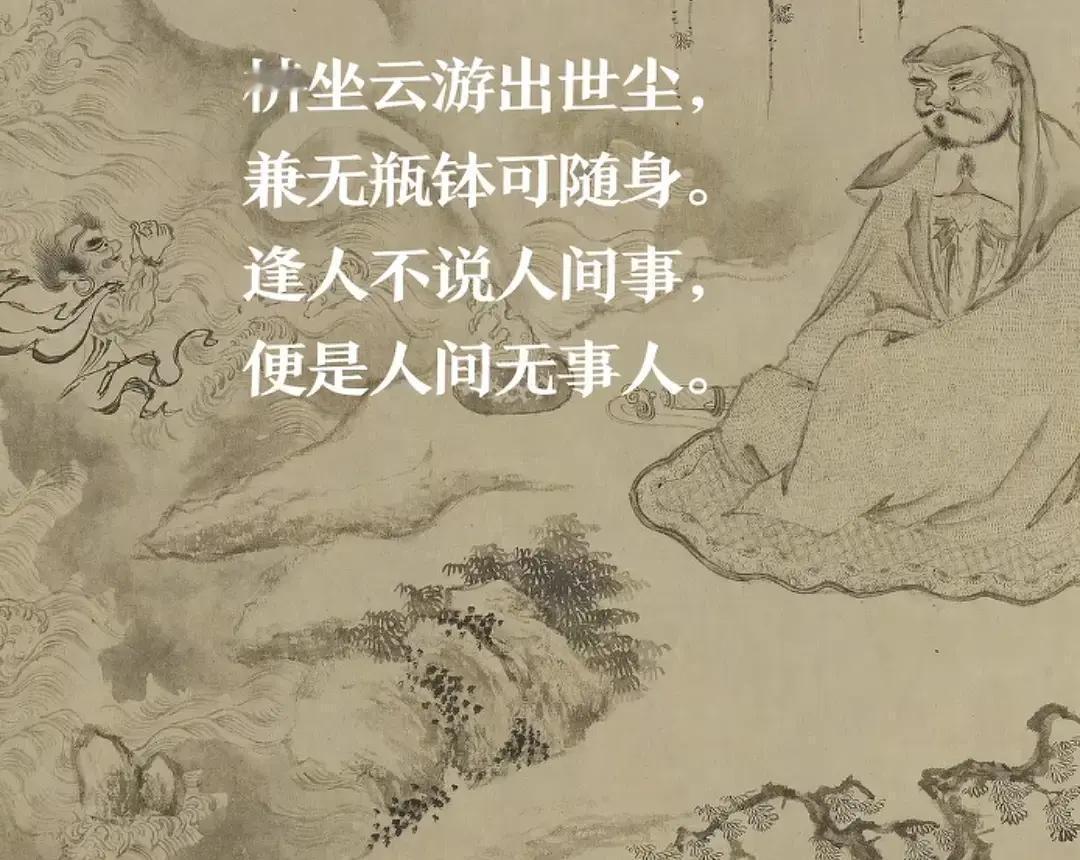 坐云游出世尘，
兼无瓶钵可随身。
逢人不说人间事，
便是人间无事人。